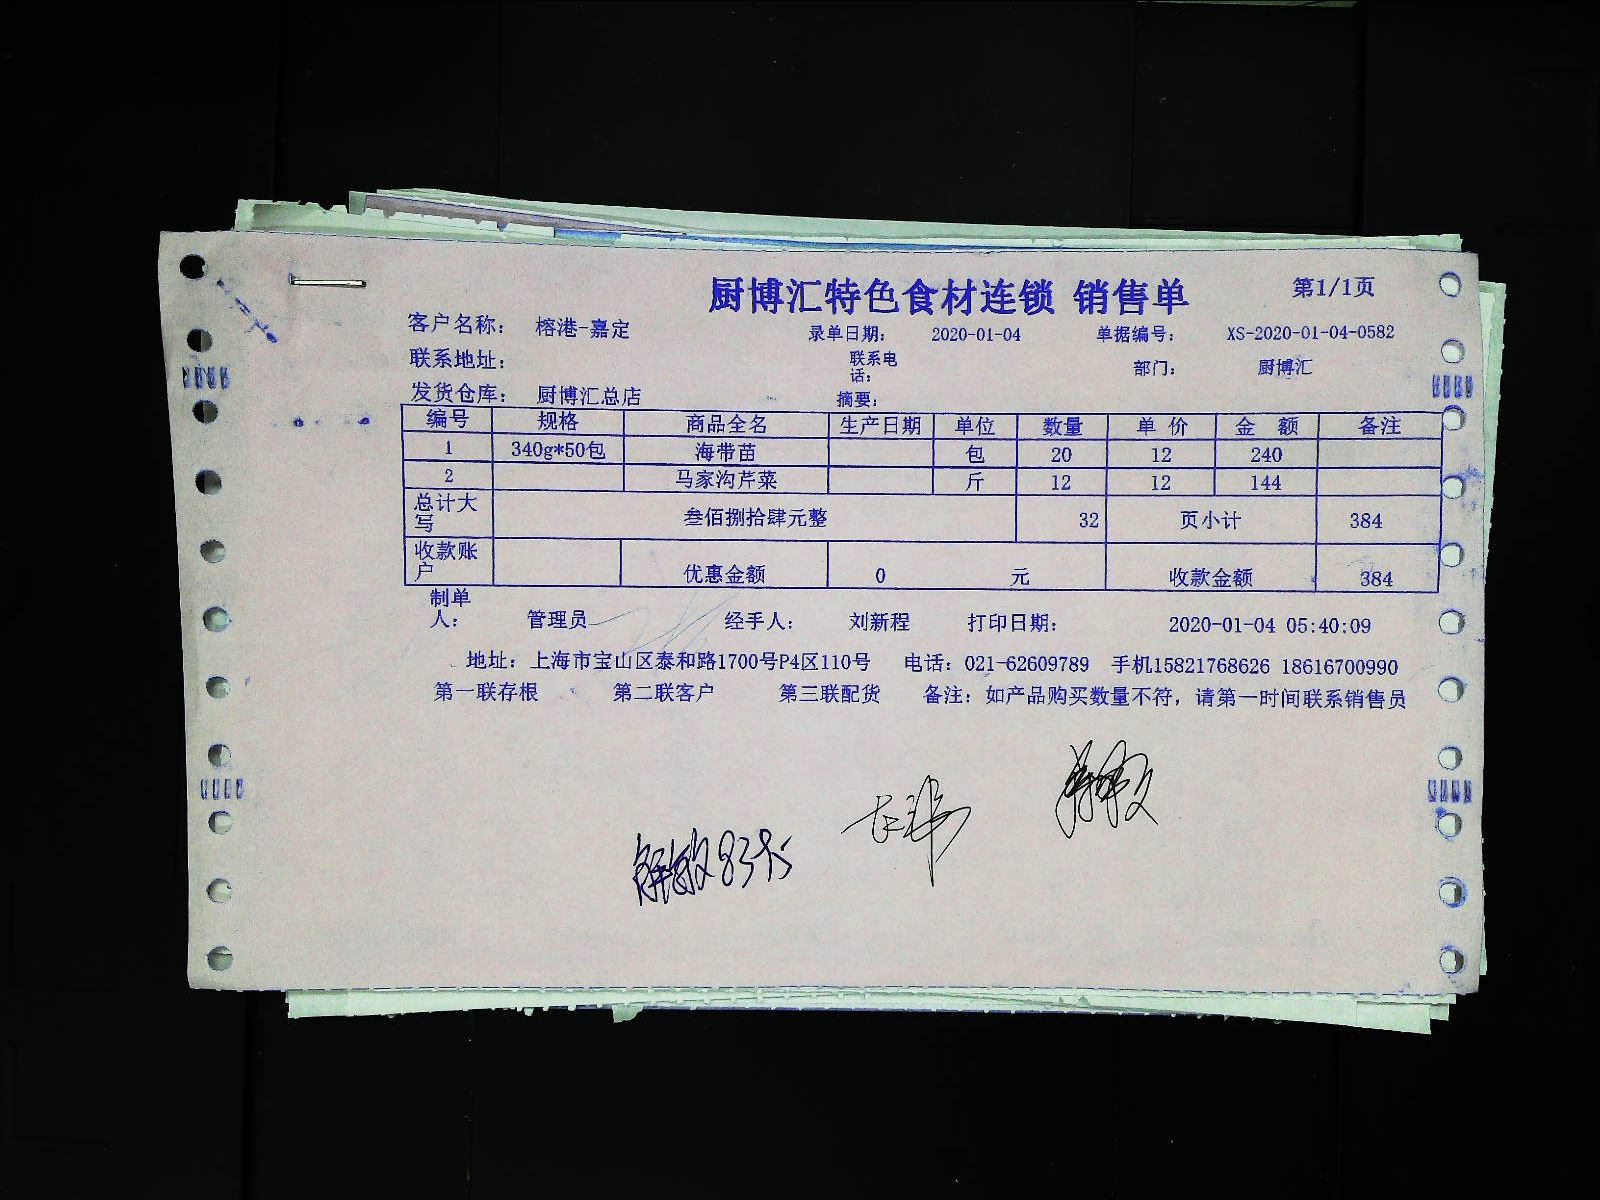 厨博汇特色食材连锁 销售单 第1/1页
客户名称： 榕港-嘉定 录单日期： 2020-01-04 单据编号： XS-2020-01-04-0582
联系地址： 联系电话： 部门： 厨博汇
发货仓库： 厨博汇总店 摘要：
编号 规格 商品全名 生产日期 单位 数量 单 价 金 额 备注
1 340g*50包 海带苗 包 20 12 240
2 马家沟芹菜 斤 12 12 144
总计大写 叁佰捌拾肆元整 32 页小计 384
收款账户 优惠金额 0 元 收款金额 384
制单人： 管理员 经手人： 刘新程 打印日期： 2020-01-04 05:40:09
地址：上海市宝山区泰和路1700号P4区110号 电话：021-62609789 手机15821768626 18616700990
第一联存根 第二联客户 第三联配货 备注：如产品购买数量不符，请第一时间联系销售员